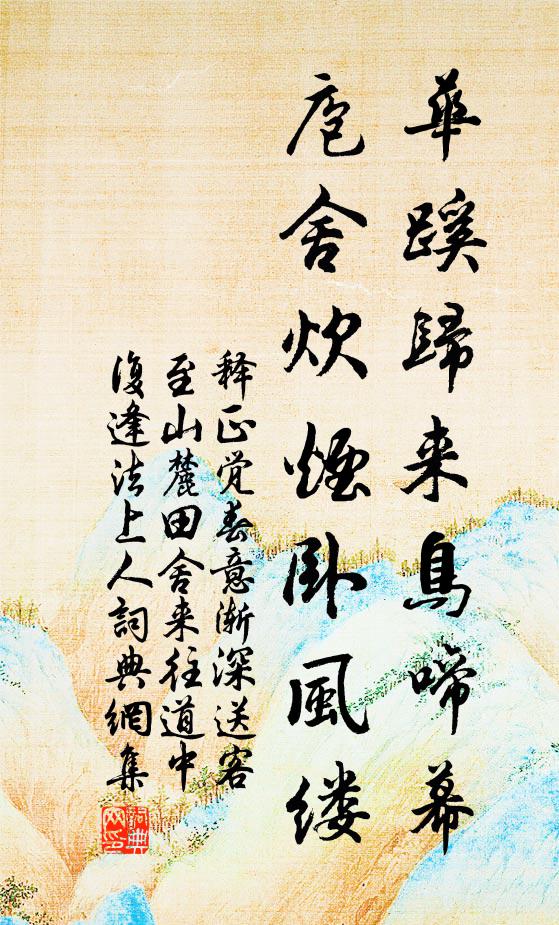 華蹊歸来鳥啼幕
庖舍炊煙卧風缕
释正觉春意渐深送客
至山麓田舍来往道中
復逢法上人詞典網集
詞典
网印